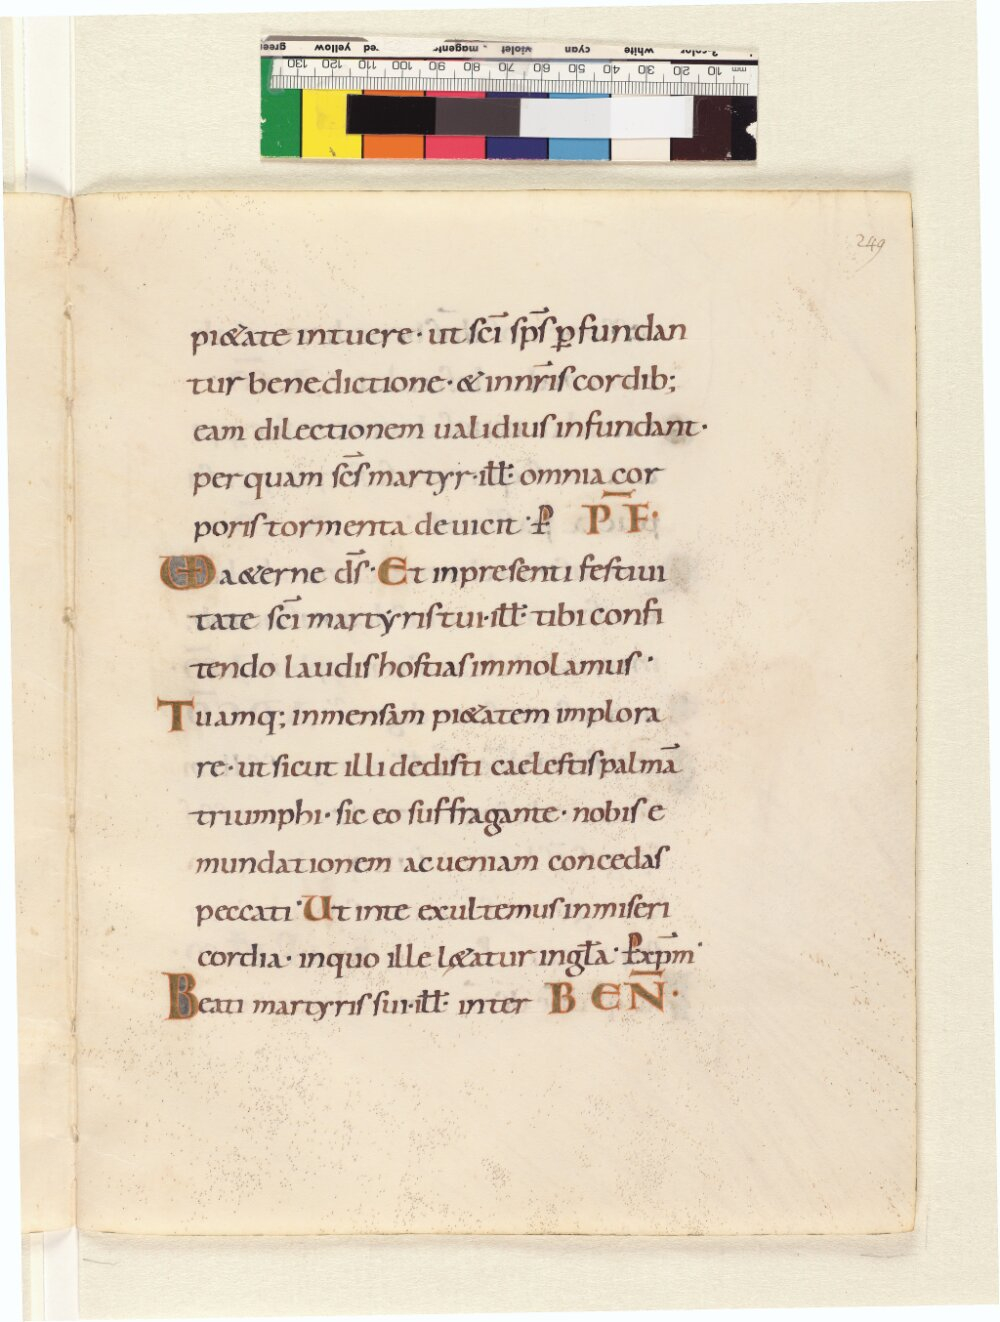 green yellow red magenta violet cyan white 3-color
130 120 110 100 90 80 70 60 50 40 30 20 10 mm
249
pi&ate intuere · ut sc̄i sp̄s ꝑfundan
tur benedictione · & innr̄is cordib;
eam dilectionem ualidius infundant ·
per quam sc̄s martyr · ill̄ · omnia cor
poris tormenta deuicit · P P̄ F̄ ·
UD a&erne dī · Et inpresenti festiui
tate sc̄i martyris tui · ill̄ · tibi confi
tendo laudis hostias immolamus ·
Tuamq; inmensam pi&atem implora
re · ut sicut illi dedisti caelestis palmā
triumphi · sic eo suffragante · nobis e
mundationem ac ueniam concedas
peccati · Ut inte exultemus inmiseri
cordia · inquo ille l&atur ingl̄a · P xp̄m ·
Beati martyris sui · ill̄ · inter B EN̄ ·